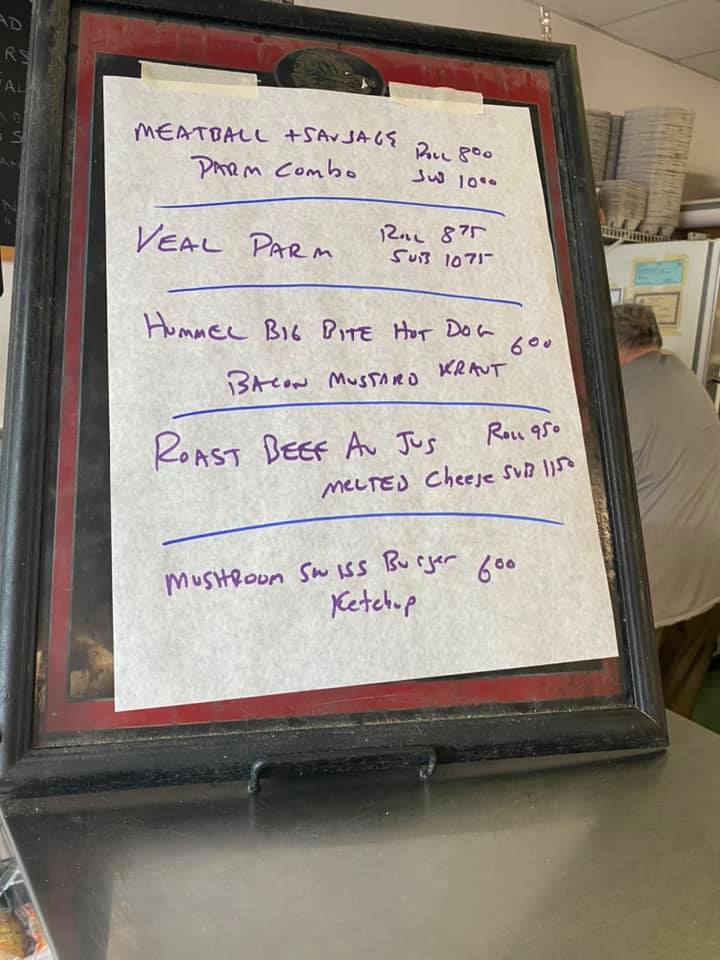 MEATBALL + SAUSAGE Roll 800
PARM Combo SUB 1000
VEAL PARM Roll 875
SUB 1075
HUMMEL BIG BITE HOT DOG 600
BACON MUSTARD KRAUT
ROAST BEEF AU JUS Roll 950
MELTED Cheese SUB 1150
MUSHROOM SWISS Burger 600
Ketchup